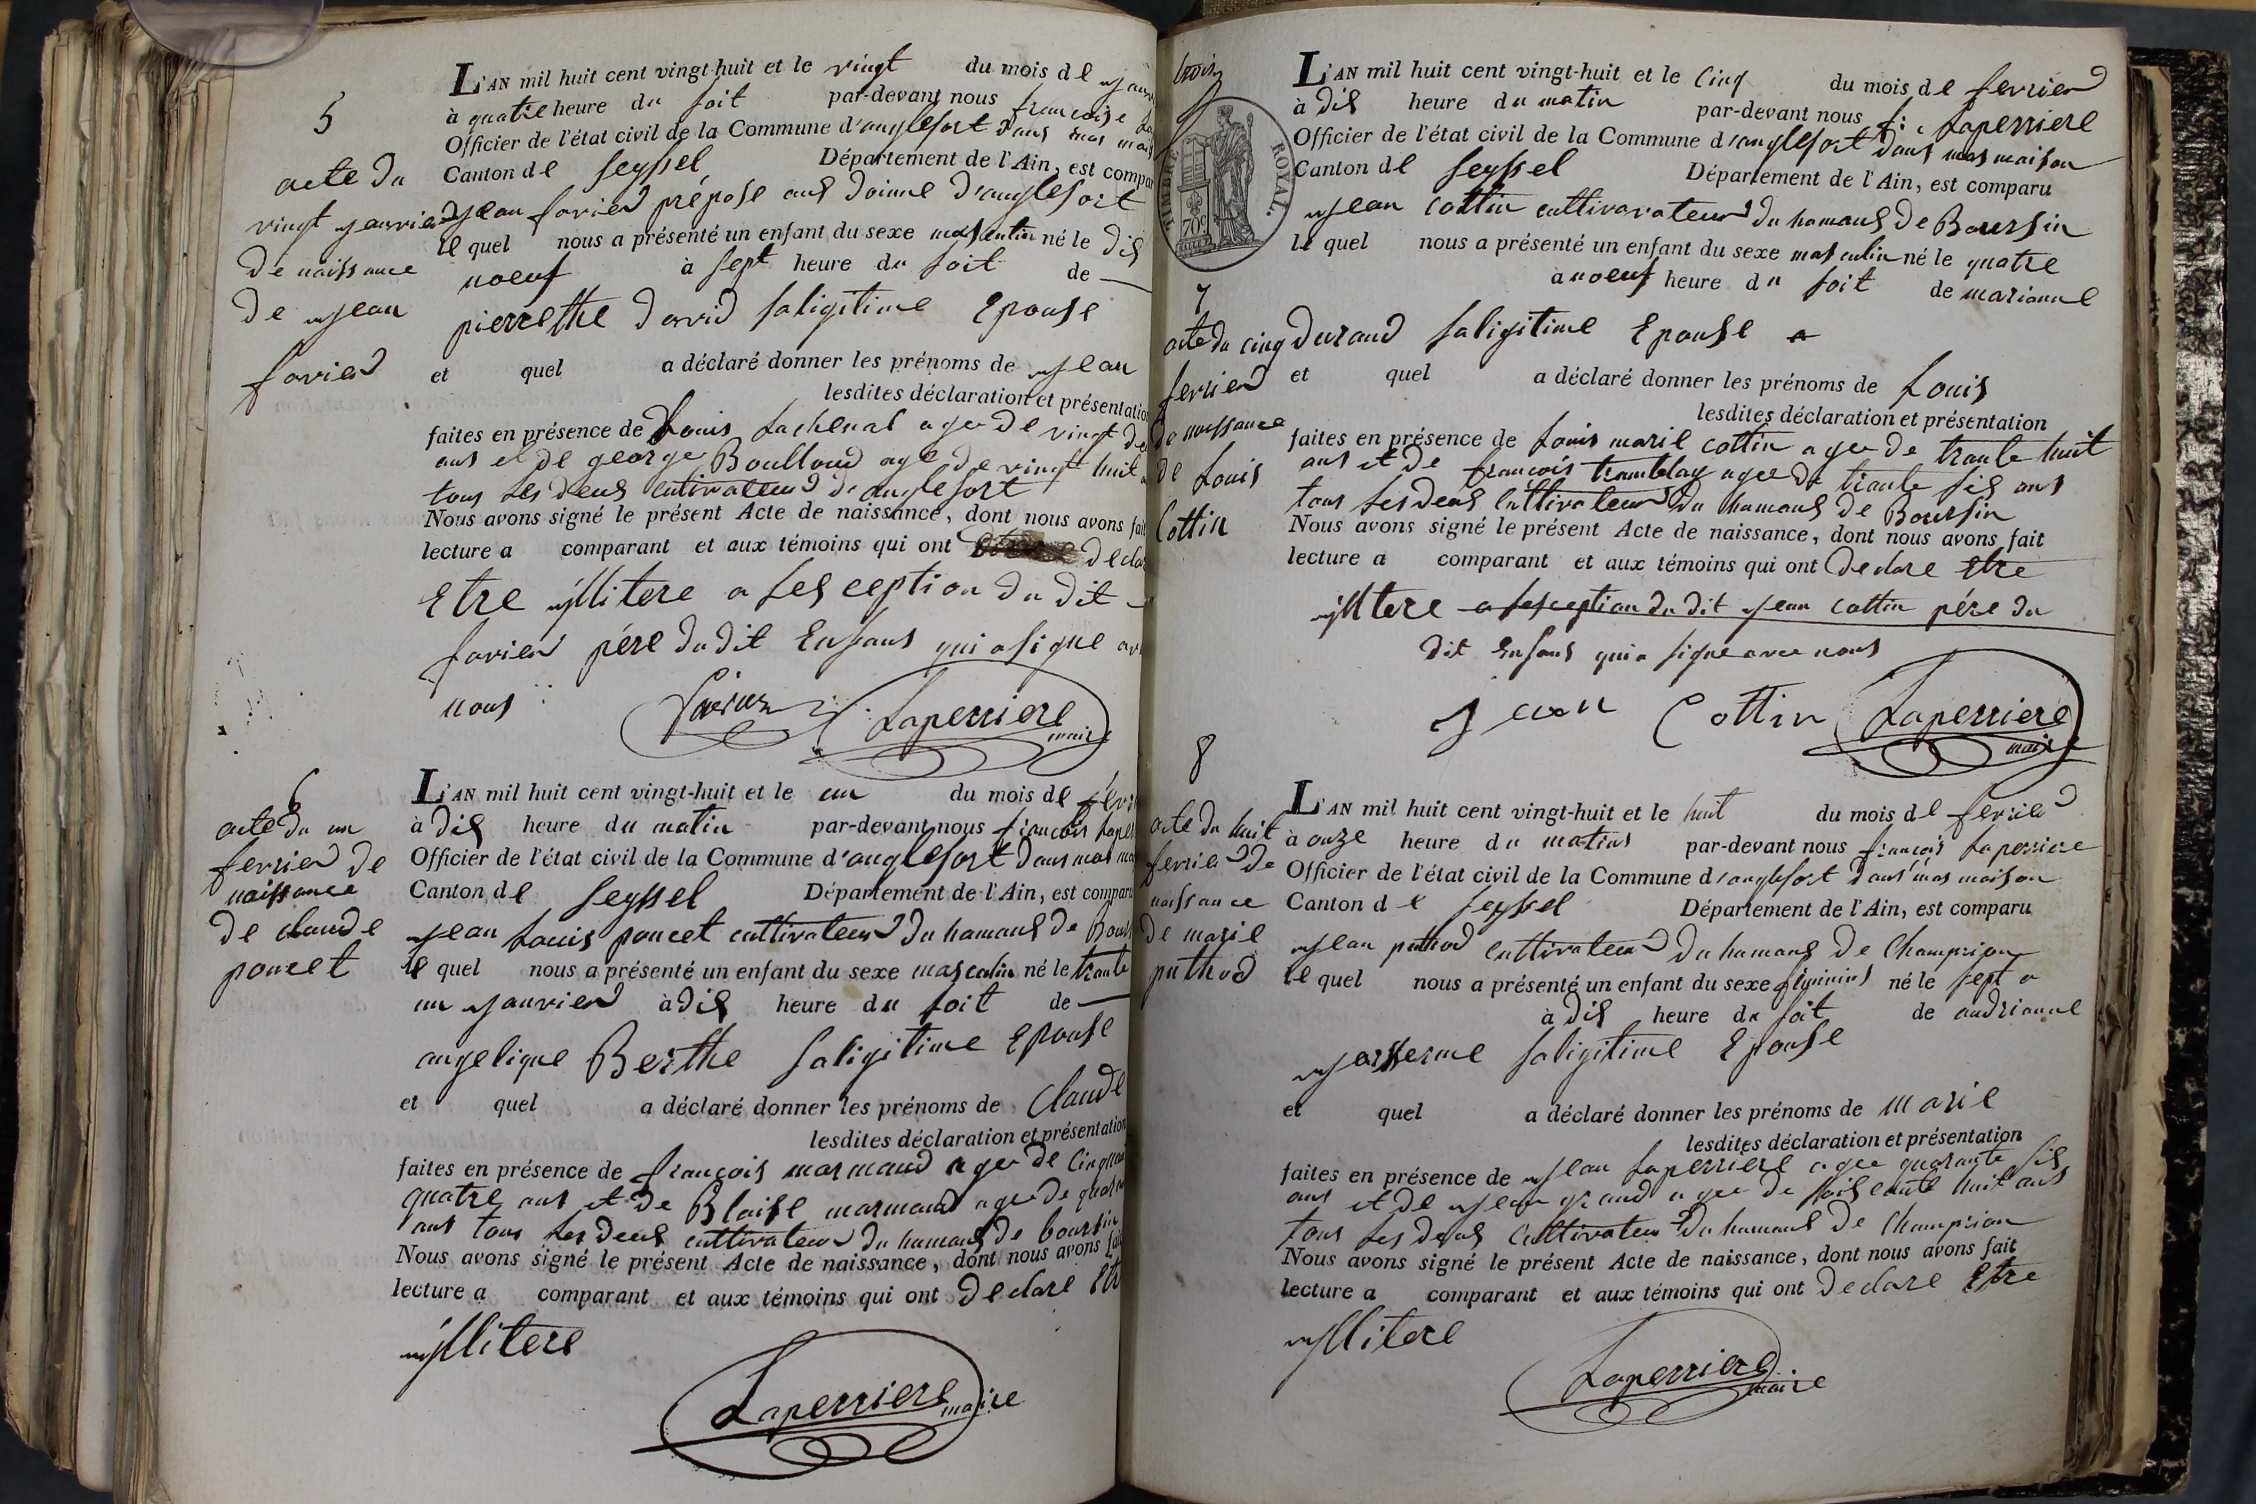 5
acte du
vingt janvier
de naissance
de jean
favier
L'AN mil huit cent vingt-huit et le vingt du mois de
à quatre heure du soit par-devant nous françoise
Officier de l'état civil de la Commune d'anglefort dans mas
Canton de seyssel Département de l'Ain, est compar
jean favier prépose aus doinne d'anglefort
le quel nous a présenté un enfant du sexe masculin né le dis
noeuf à sept heure du soit de
pierrethe david saligitime Epouse
et quel a déclaré donner les prénoms de jean
lesdites déclaration et présentation
faites en présence de Louis Lachenal agee de vingt
ans et de george Boulloud age de vingt huit
tous Les deus cutivateur d'anglefort
Nous avons signé le présent Acte de naissance, dont nous avons fait
lecture a comparant et aux témoins qui ont declar
Etre jllitere a Lesception du dit
favier pére du dit Enfans qui a signe
nous
favier Laperriere
maire
6
acte du un
fevrier de
naissance
de claude
poncet
L'AN mil huit cent vingt-huit et le un du mois de
à dis heure du matin par-devant nous françois
Officier de l'état civil de la Commune d'anglefort dans mas
Canton de seyssel Département de l'Ain, est comparu
jean Louis poncet cultivateur du hamaus de
le quel nous a présenté un enfant du sexe masculin né le trante
un janvier à dis heure du soit de
angelique Berthe saligitime Epouse
et quel a déclaré donner les prénoms de Claude
lesdites déclaration et présentation
faites en présence de françois marmand agee de
quatre ans et de Blaise marmand agee de
ans tous Les deus cultivateur du hamaus de boursin
Nous avons signé le présent Acte de naissance, dont nous avons fait
lecture a comparant et aux témoins qui ont declare
jllitere
Laperriere
maire
trois
TIMBRE ROYAL.
70c
7
acte du cinq
fevrier
de naissance
de Louis
Cottin
L'AN mil huit cent vingt-huit et le cinq du mois de fevrier
à dis heure du matin par-devant nous f: Laperriere
Officier de l'état civil de la Commune d'anglefort dans mas maison
Canton de seyssel Département de l'Ain, est comparu
jean cottin cultivavateur du hamaus de Boursin
le quel nous a présenté un enfant du sexe masculin né le quatre
à noeuf heure du soit de marianne
durand saligitime Epouse
et quel a déclaré donner les prénoms de Louis
lesdites déclaration et présentation
faites en présence de Louis marie cottin agee de trante huit
ans et de françois tramblay agee de trante sis ans
tous Les deus cultivateur du hamaus de Boursin
Nous avons signé le présent Acte de naissance, dont nous avons fait
lecture a comparant et aux témoins qui ont declare Etre
jlltere a Lesception du dit jean cottin pére du
dit Enfans qui a signe avec nous
jean Cottin Laperriere
maire
8
acte du huit
fevrier de
naissance
de marie
puthod
L'AN mil huit cent vingt-huit et le huit du mois de fevrier
à onze heure du matins par-devant nous françois Laperriere
Officier de l'état civil de la Commune d'anglefort dans mas maison
Canton de seyssel Département de l'Ain, est comparu
jean puthod cultivateur du hamaus de Champrion
le quel nous a présenté un enfant du sexe né le sept
à dis heure du soit de andrianne
saligitime Epouse
et quel a déclaré donner les prénoms de marie
lesdites déclaration et présentation
faites en présence de jean Laperriere agee quarante sis
ans et de jean agee de soissente huit ans
tous Les deus cultivateur du hamaus de Champrion
Nous avons signé le présent Acte de naissance, dont nous avons fait
lecture a comparant et aux témoins qui ont declare Etre
jllitere
Laperriere
maire